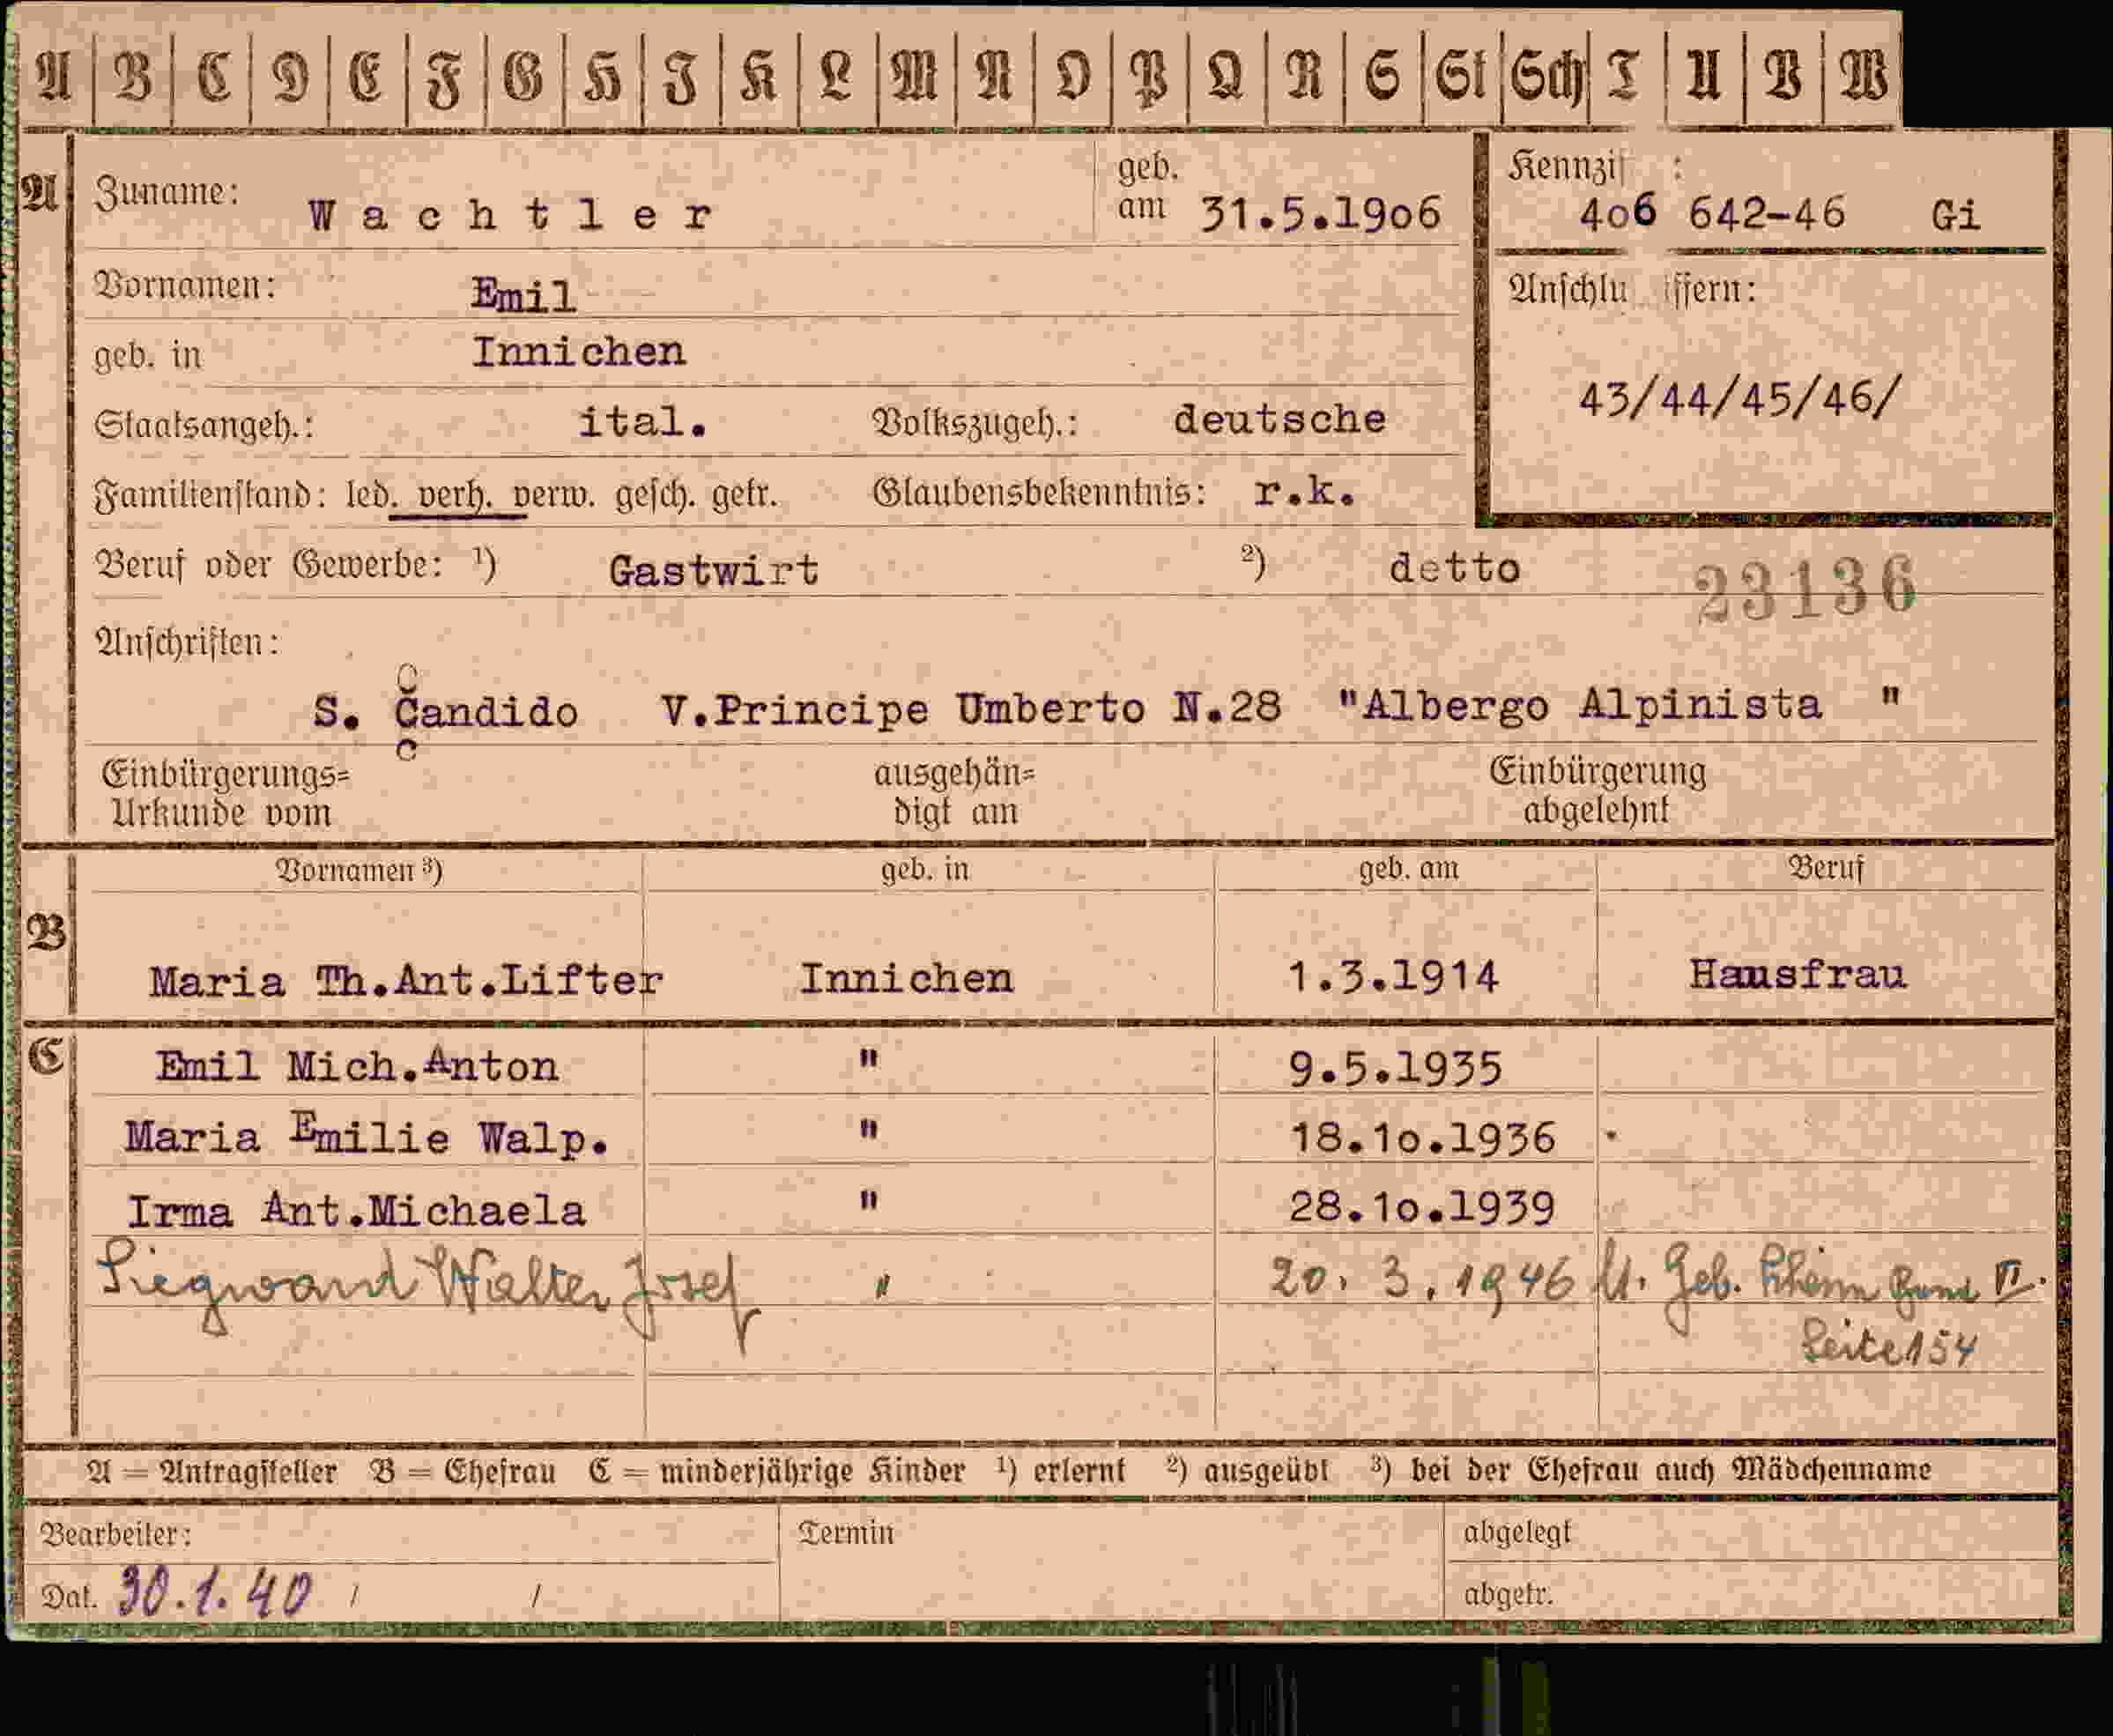 A B C D E F G H J K L M N O P Q R S St Sch T U V W
A Zuname: Wachtler geb. am 31.5.1906 Kennzif :
406 642-46 Gi
Vornamen: Emil Anschlu iffern:
geb. in Innichen
43/44/45/46/
Staatsangeh.: ital. Volkszugeh.: deutsche
Familienstand: led. verh. verw. gesch. getr. Glaubensbekenntnis: r.k.
Beruf oder Gewerbe: ¹) Gastwirt ²) detto 23136
Anschriften:
S. Candido V.Principe Umberto N.28 "Albergo Alpinista "
Einbürgerungs= ausgehän= Einbürgerung
Urkunde vom digt am abgelehnt
Vornamen ³) geb. in geb. am Beruf
B
Maria Th.Ant.Lifter Innichen 1.3.1914 Hausfrau
C Emil Mich.Anton " 9.5.1935
Maria Emilie Walp. " 18.10.1936
Irma Ant.Michaela " 28.10.1939
Siegward Walter Josef " 20. 3. 1946 Geb. VI.
Seite 154
A = Antragsteller B = Ehefrau C = minderjährige Kinder ¹) erlernt ²) ausgeübt ³) bei der Ehefrau auch Mädchenname
Bearbeiter: Termin abgelegt
Dat. 30.1.40 / / abgetr.